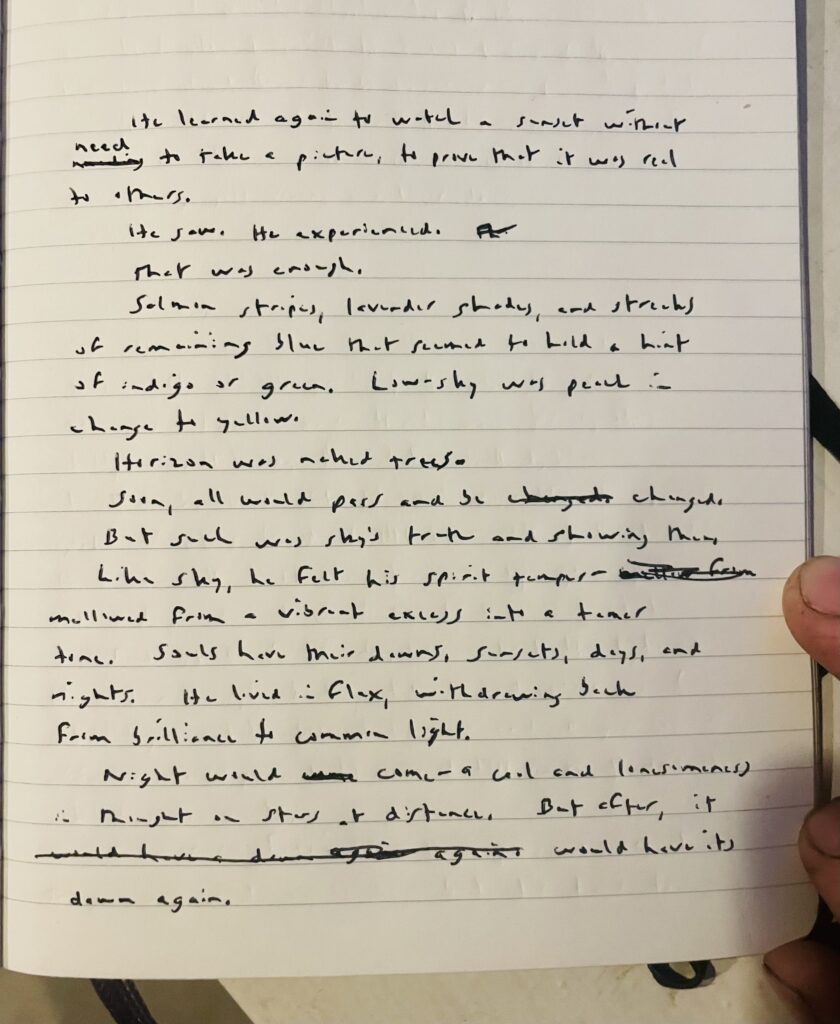 He learned again to watch a sunset without
need needing to take a picture, to prove that it was real
to others.
He saw. He experienced.
That was enough.
Salmon stripes, lavender shades, and streaks
of remaining blue that seemed to hold a hint
of indigo or green. Low-sky was peach in
change to yellow.
Horizon was naked trees.
Soon, all would pass and be changed. changed.
But such was sky's truth and showing them,
Like sky, he felt his spirit temper- from
mellowed from a vibrant excess into a tamer
tone. Souls have their dawns, sunsets, days, and
nights. He lived in flux, withdrawing back
from brilliance to common light.
Night would come-a cool and lonesomeness
in thought on stars at distance. But after, it
would have a dawn again again. would have its
dawn again.